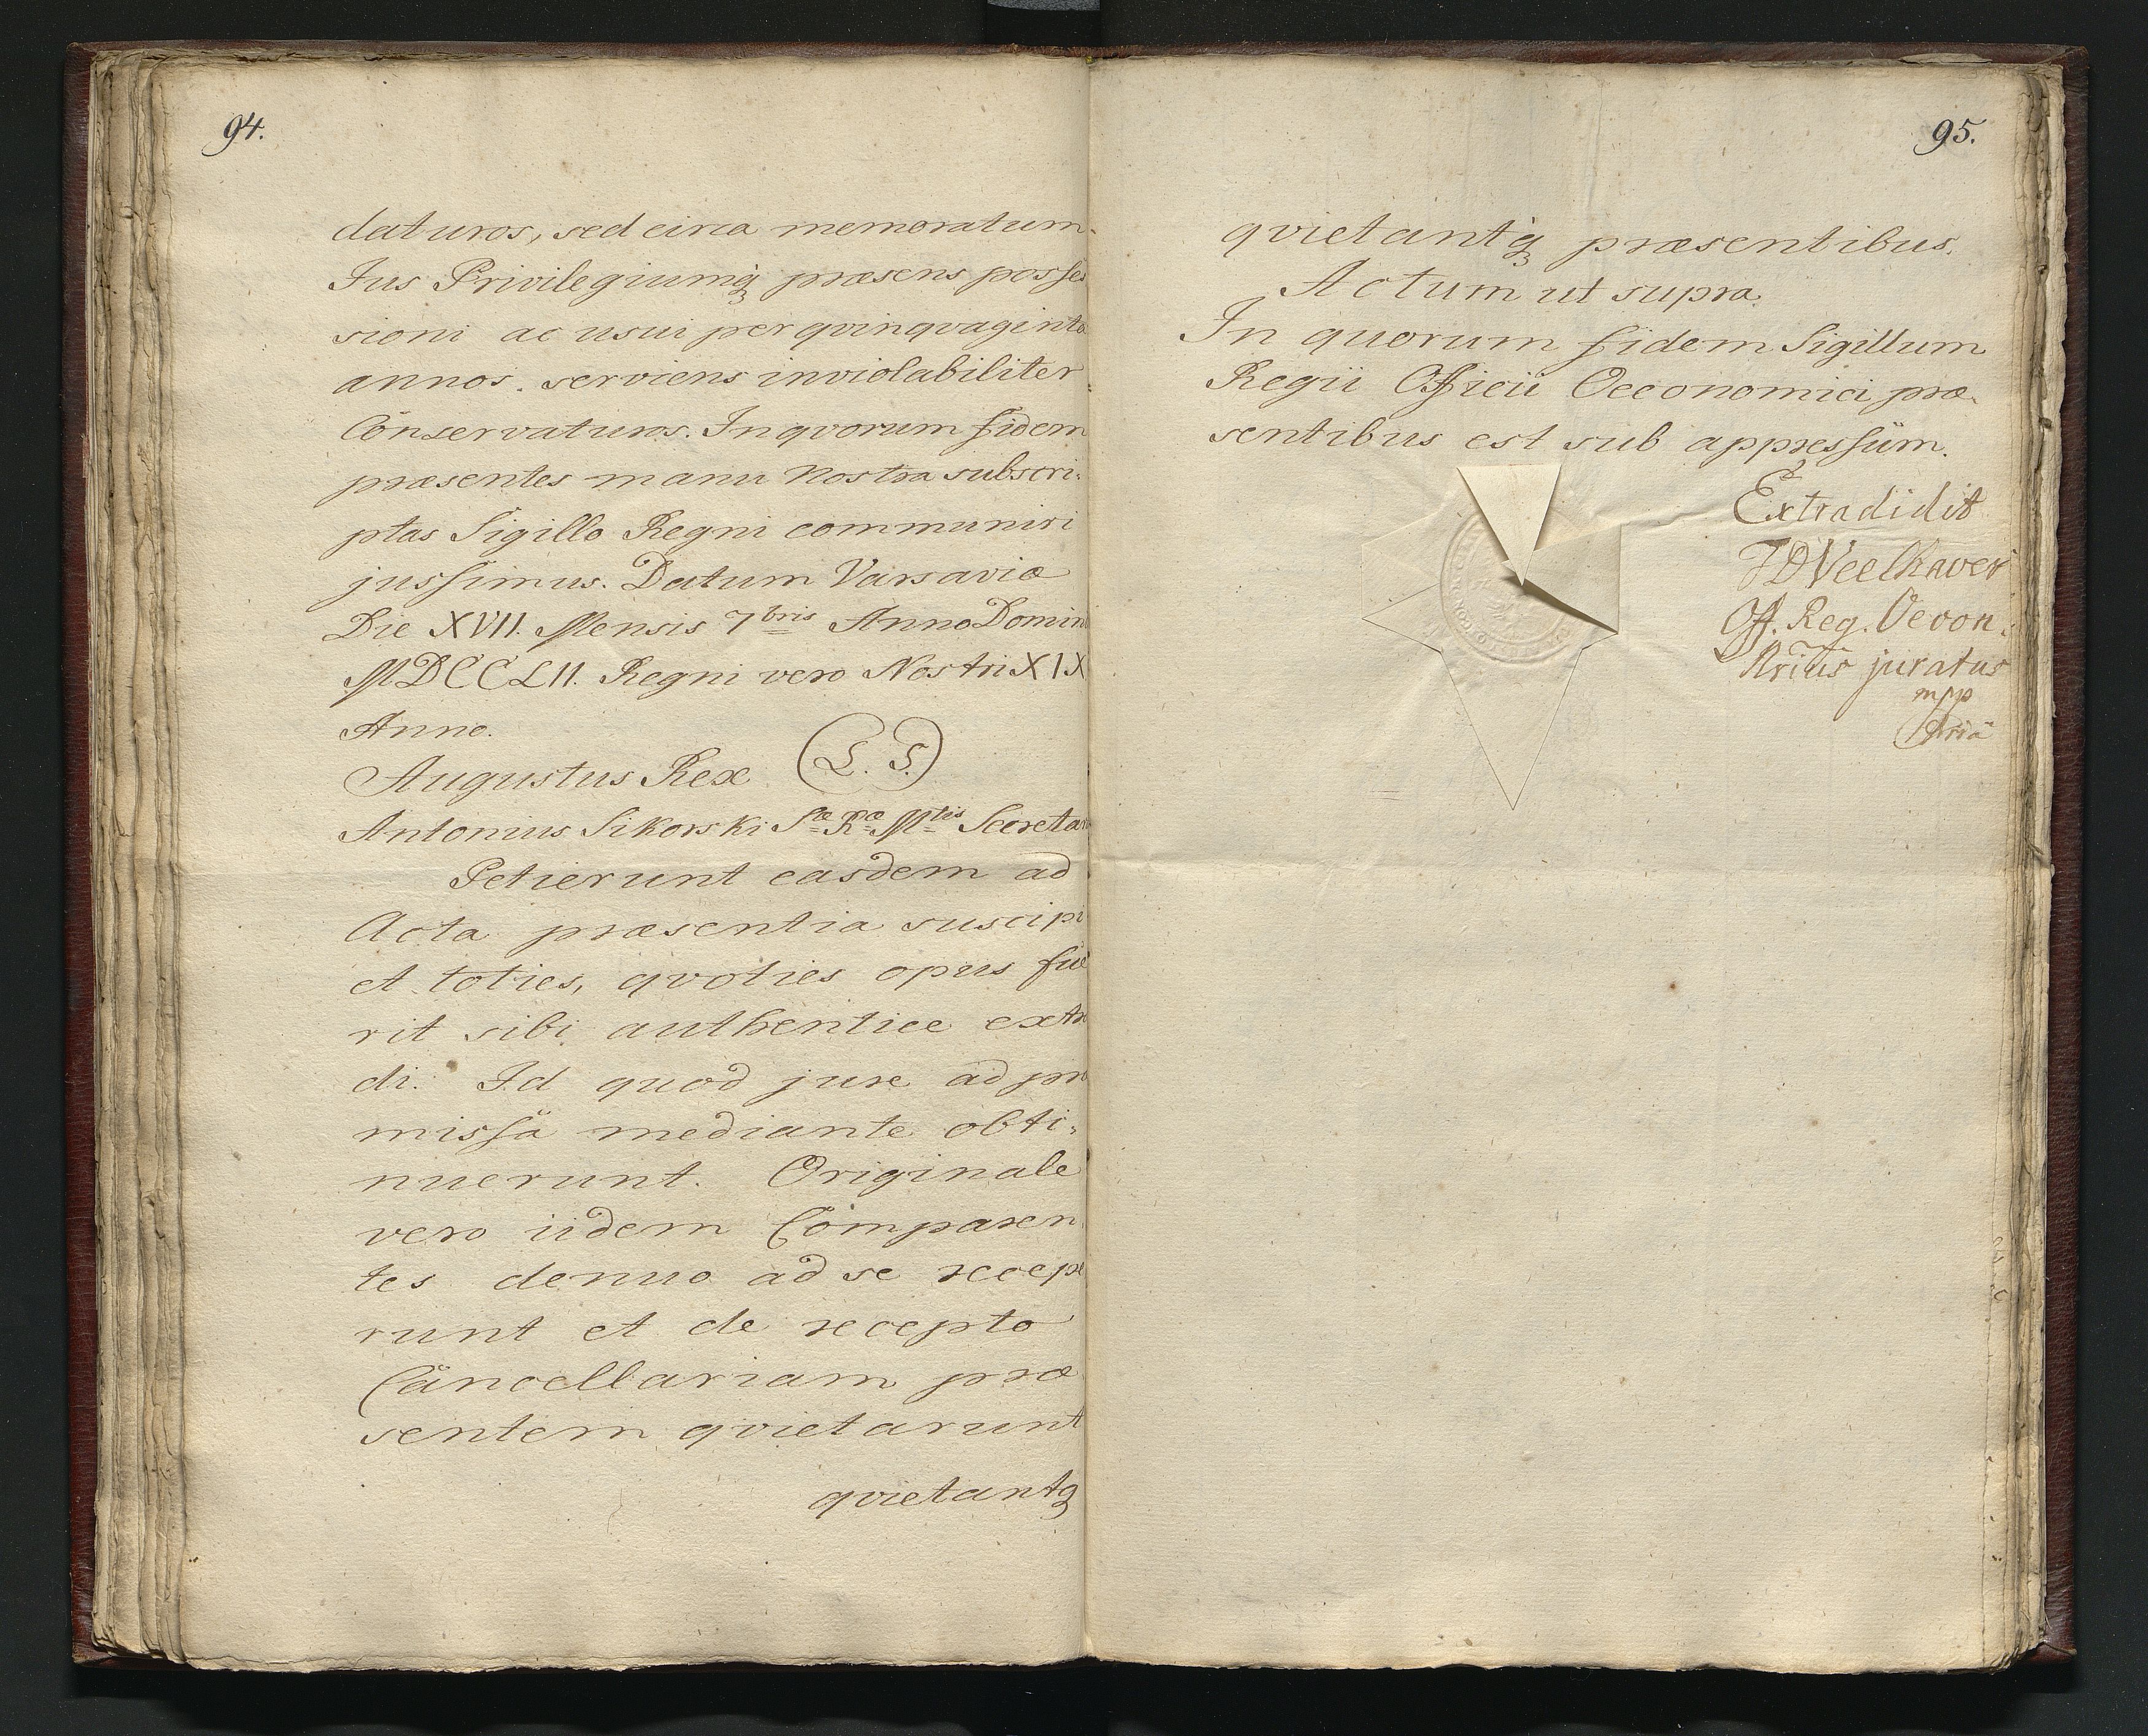 94.
daturos, sed circa memoratum
Jus Privilegiumq̀ꝫ præsens posses
sioni ac usui per qvinqvaginta
annos. serviens inviolabiliter
Conservaturos. In qvorum fidem
præsentes manu Nostra subscri:
ptas Sigillo Regni communiri
jussimus. Datum Varsaviæ
Die XVII. Mensis 7bris Anno Domini
MDCCLII. Regni vero Nostri XIX
Anno.
Augustus Rex (L. S.)
Antonius Sikorski Sæ Ræ Mtis Secretar
Petierunt easdem ad
Acta præsentia suscipi
et toties, qvoties opus fue
rit sibi authentice extra
di. Id quod jure ad præ
missä mediante obti:
nuerunt. Originale
vero iidem Comparen
tes denuo ad se recepe
runt et de recepto
Cancellariam præ
sentem qvietarunt
qvietantqꝫ
95.
qvietantq̀ꝫ præsentibus.
Actum ut supra.
In quorum fidem Sigillum
Regii Officii Oeconomici præ
sentibus est sub appressüm.
Extradidit
Off. Reg. Oecon.
juratus
mpp